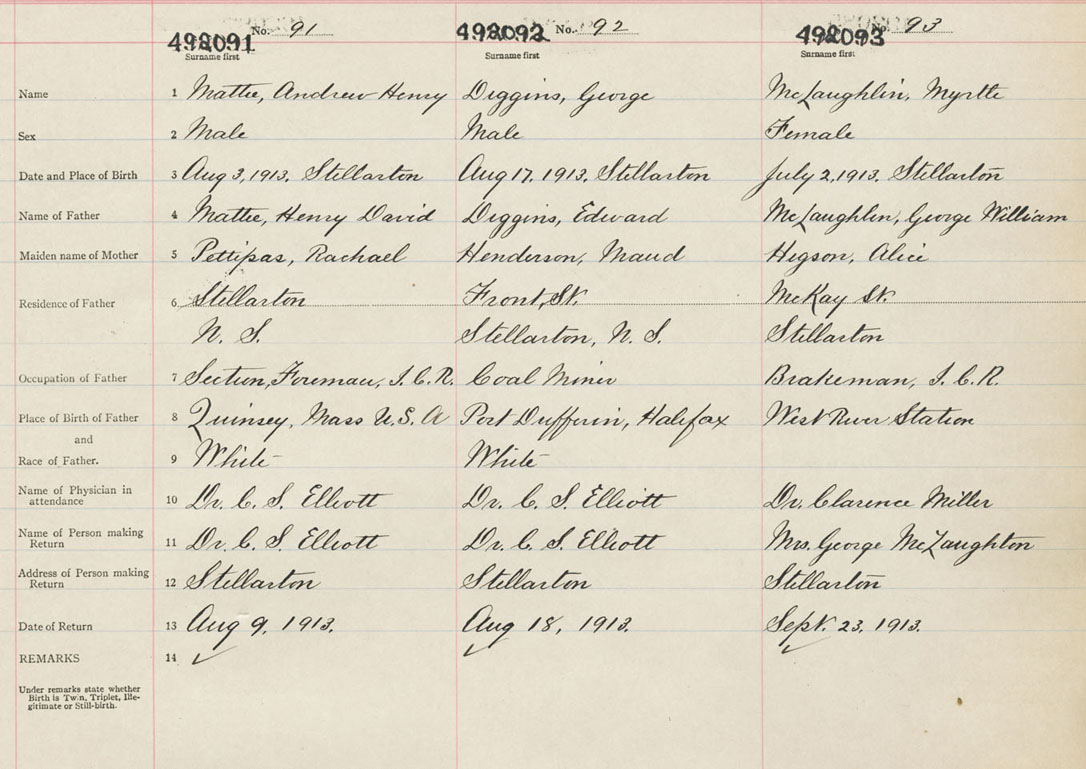 No. 91 No. 92 No. 93
492091 492092 492093
Surname first Surname first Surname first
Name 1 Mattie, Andrew Henry Diggins, George McLaughlin, Myrtle
Sex 2 Male Male Female
Date and Place of Birth 3 Aug 3, 1913. Stellarton Aug 17. 1913. Stellarton July 2, 1913. Stellarton
Name of Father 4 Mattie, Henry David Diggins, Edward McLaughlin, George William
Maiden name of Mother 5 Pettipas, Rachael Henderson, Maud Higson, Alice
Residence of Father 6 Stellarton Front, St. McKay St.
N. S. Stellarton, N. S. Stellarton
Occupation of Father 7 Section, Foreman, I.C.R. Coal Miner Brakeman, I.C.R.
Place of Birth of Father 8 Quinsey, Mass U.S.A Port Dufferin, Halifax West River Station
and
Race of Father. 9 White White
Name of Physician in attendance 10 Dr. C. S. Elliott Dr. C. S. Elliott Dr. Clarence Miller
Name of Person making Return 11 Dr. C. S. Elliott Dr. C. S. Elliott Mrs. George McLaughton
Address of Person making Return 12 Stellarton Stellarton Stellarton
Date of Return 13 Aug 9, 1913. Aug 18, 1913. Sept. 23, 1913.
REMARKS 14
Under remarks state whether
Birth is Twin, Triplet, Ille-
gitimate or Still-birth.